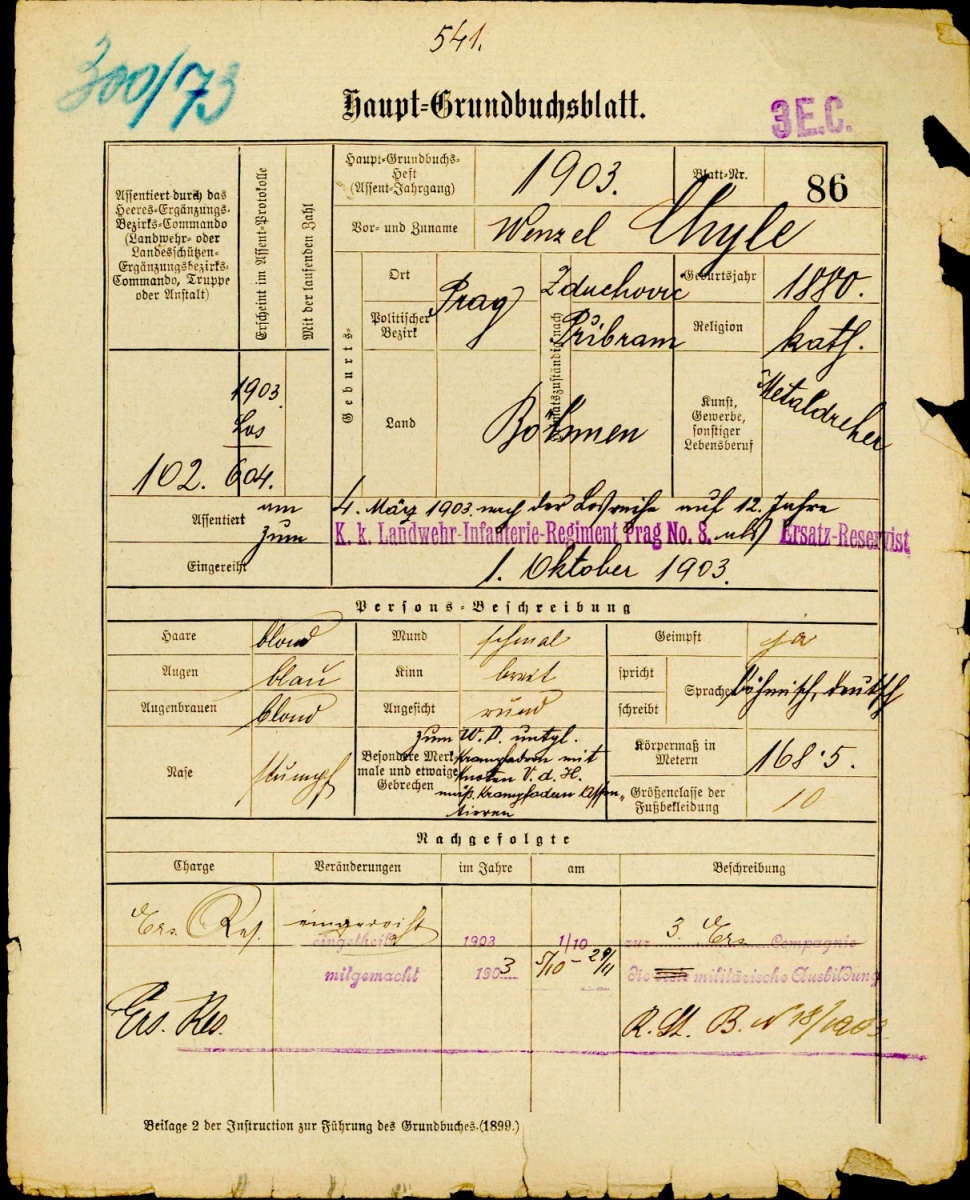 541.
300/73
Haupt-Grundbuchsblatt.
3 E.C.
Assentiert durch das Heeres-Ergänzungs-Bezirks-Commando (Landwehr- oder Landesschützen-Ergänzungsbezirks-Commando, Truppe oder Anstalt)
Erscheint im Assent-Protokolle
Mit der laufenden Zahl
Haupt-Grundbuchs-Heft (Assent-Jahrgang)
1903.
Blatt-Nr.
86
Vor- und Zuname
Wenzel Chyle
Geburts-
Ort
Prag
Zduchovic
Geburtsjahr
1880.
Politischer Bezirk
Přibram
Religion
kath.
Land
Böhmen
Kunst, Gewerbe, sonstiger Lebensberuf
Metaldreher
1903.
Los
102. 604.
Assentiert
am
4. März 1903. nach der Losreihe auf 12 Jahre
zum
K. k. Landwehr-Infanterie-Regiment Prag No. 8. als Ersatz-Reservist
Eingereiht
1. Oktober 1903.
Persons-Beschreibung
Haare
blond
Mund
schmal
Geimpft
ja
Augen
blau
Kinn
breit
spricht
schreibt
Sprachen
böhmisch, deutsch
Augenbrauen
blond
Angesicht
rund
Nase
stumpf
Besondere Merkmale und etwaige Gebrechen
zum W. D. untgl.
Krampfadern mit
Knoten V. d. H.
Krampfadern Assen-
tieren
Körpermaß in Metern
168·5.
Größenclasse der Fußbekleidung
10
Nachgefolgte
Charge
Veränderungen
im Jahre
am
Beschreibung
Ers. Res.
eingereiht
eingetheilt
1903
1/10
zur 3. Ers. Compagnie
mitgemacht
1903
5/10 - 29/11
die militärische Ausbildung
Ers. Res.
R. St. B. N 18/1903
Beilage 2 der Instruction zur Führung des Grundbuches. (1899.)